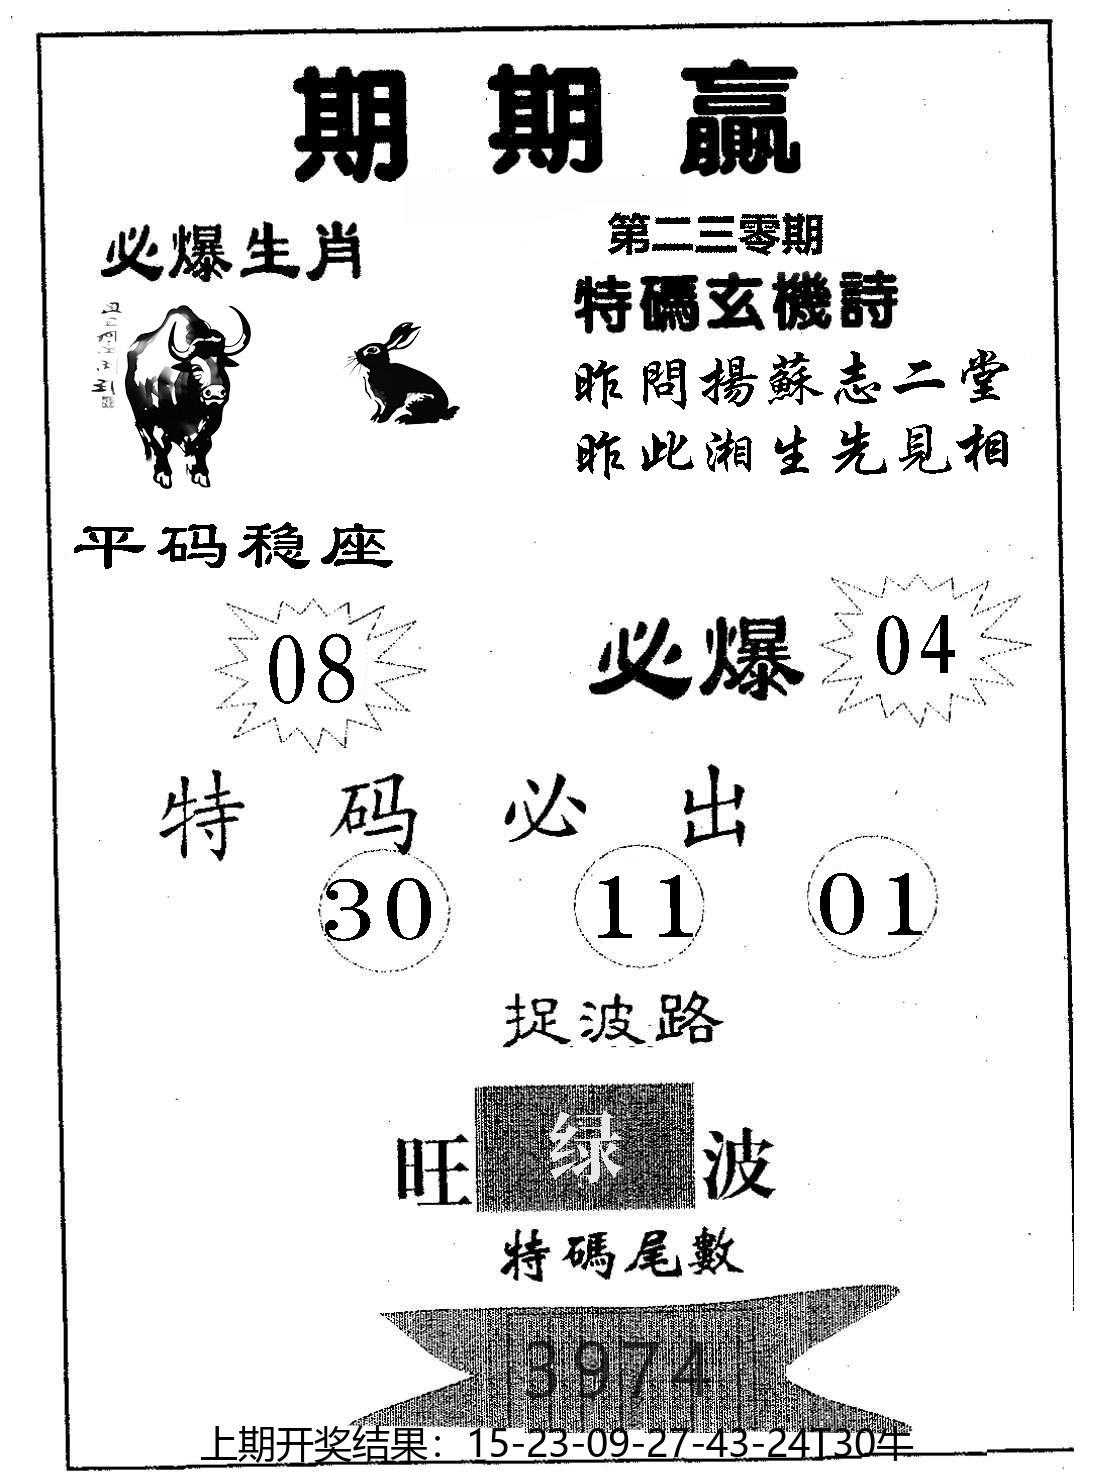 期期赢
第二三零期
必爆生肖
特碼玄機詩
昨問揚蘇志二堂
昨此湘生先見相
平码稳座
08
必爆 04
特码必出
30 11 01
捉波路
旺 绿 波
特碼尾數
3974
上期开奖结果：15-23-09-27-43-24T30牛